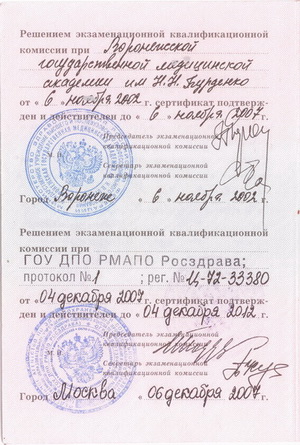 Решением экзаменационной квалификационной
комиссии при Воронежской
государственной медицинской
академии им Н.Н. Бурденко
от « 6 » ноября 2002 г. сертификат подтверж-
ден и действителен до « 6 » ноября 2007 г.
Председатель экзаменационной
квалификационной комиссии
Секретарь экзаменационной
квалификационной комиссии
Город Воронеж « 6 » ноября 2002 г.
Решением экзаменационной квалификационной
комиссии при
ГОУ ДПО РМАПО Росздрава;
протокол №1 ; рег. №14-72-33380
от «04 декабря 2007 г. сертификат подтверж-
ден и действителен до «04 декабря 2012 г.
Председатель экзаменационной
квалификационной комиссии
М.П.
Секретарь экзаменационной
квалификационной комиссии
Город Москва «06 декабря 2007 г.